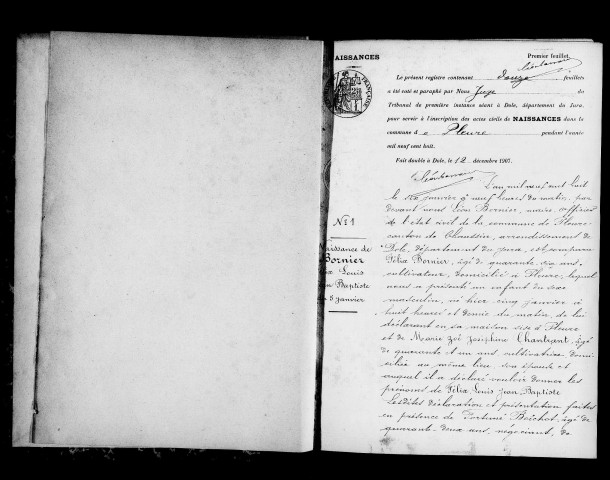 NAISSANCES
Premier feuillet.
Le présent registre contenant douze feuillets
a été coté et paraphé par Nous Juge du
Tribunal de première instance séant à Dole, département du Jura,
pour servir à l'inscription des actes civils de NAISSANCES dans la
commune de Pleure pendant l'année
mil neuf cent huit.
Fait double à Dole, le 12 décembre 1907.
N° 1
Naissance de
Bornier
Louis
Baptiste
5 janvier
L'an mil neuf cent huit
le six janvier à neuf heures du matin, par
devant nous Léon Bornier, maire, officier
de l'état civil de la commune de Pleure
canton de Chaussin, arrondissement de
Dole, département du Jura, est comparu
Félix Bornier, âgé de quarante six ans,
cultivateur, domicilié à Pleure, lequel
nous a présenté un enfant du sexe
masculin, né hier cinq janvier à
huit heures et demie du matin, de lui
déclarant en sa maison sise à Pleure
et de Marie Zoé Joséphine Chantrant, âgée
de quarante et un ans, cultivatrice, domi-
ciliée au même lieu, son épouse et
auquel il a déclaré vouloir donner les
prénoms de Félix Louis Jean Baptiste
Lesdites déclaration et présentation faites
en présence de Fortuné Boichot, âgé de
quarante-deux ans, négociant, de